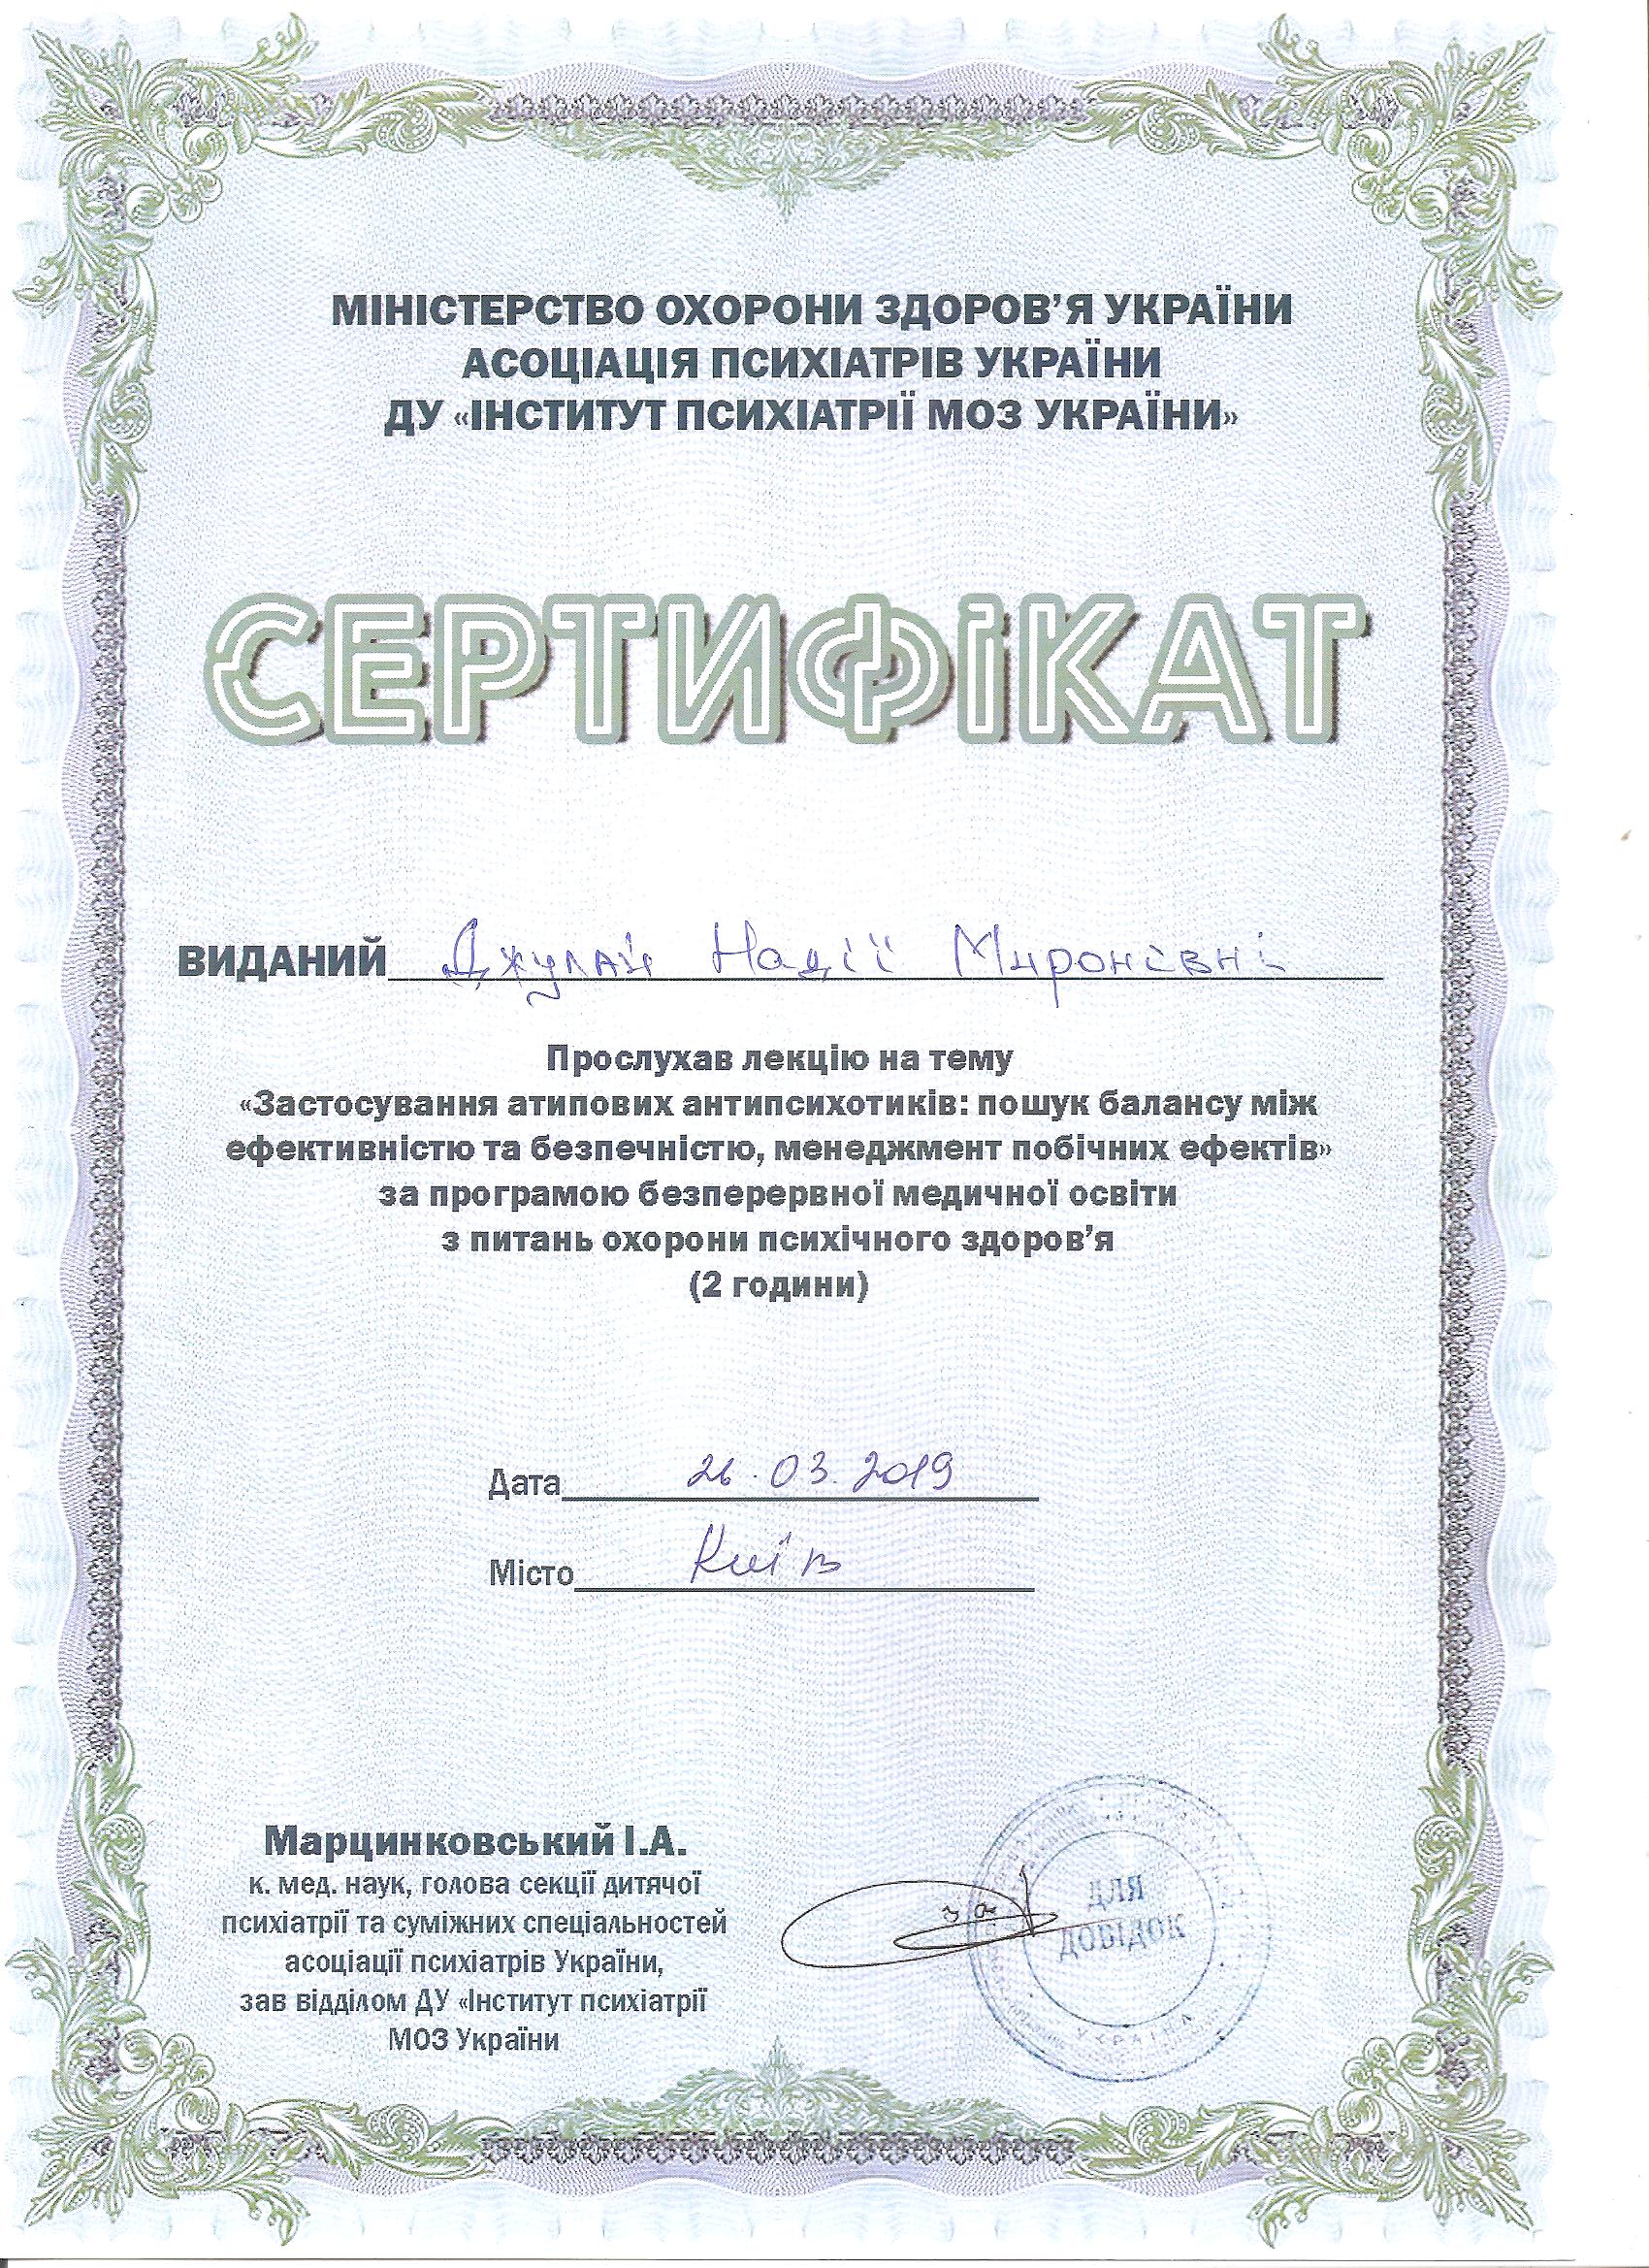 МІНІСТЕРСТВО ОХОРОНИ ЗДОРОВ’Я УКРАЇНИ
АСОЦІАЦІЯ ПСИХІАТРІВ УКРАЇНИ
ДУ «ІНСТИТУТ ПСИХІАТРІЇ МОЗ УКРАЇНИ»
СЕРТИФІКАТ
ВИДАНИЙ Джулай Надії Миронівні
Прослухав лекцію на тему
«Застосування атипових антипсихотиків: пошук балансу між
ефективністю та безпечністю, менеджмент побічних ефектів»
за програмою безперервної медичної освіти
з питань охорони психічного здоров’я
(2 години)
Дата 26.03.2019
Місто Київ
Марцинковський І.А.
к. мед. наук, голова секції дитячої
психіатрії та суміжних спеціальностей
асоціації психіатрів України,
зав відділом ДУ «Інститут психіатрії
МОЗ України
за
ДЛЯ
ДОВІДОК
УКРАЇНА